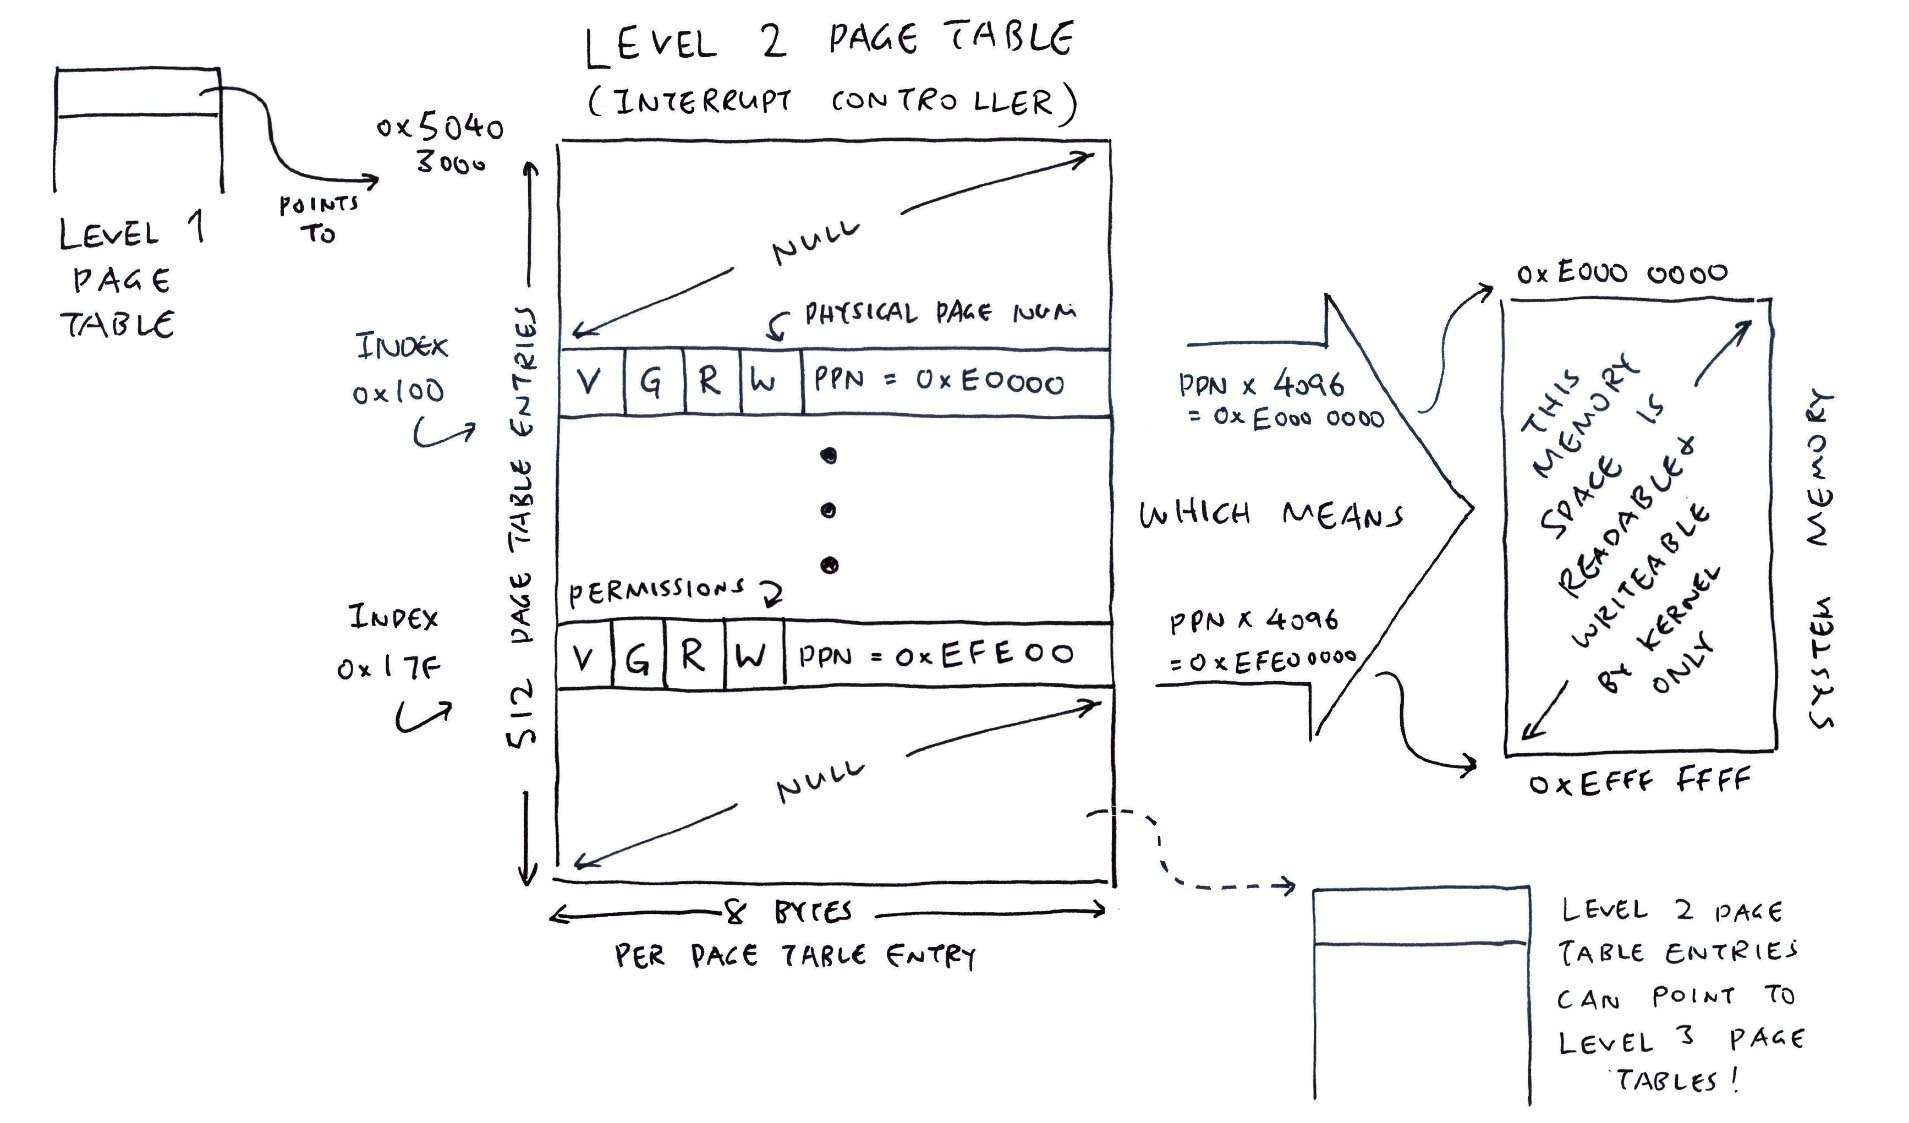 LEVEL 2 PAGE TABLE
(INTERRUPT CONTROLLER)
0x5040
3000
POINTS
TO
LEVEL 1
PAGE
TABLE
512 PAGE TABLE ENTRIES
NULL
PHYSICAL PAGE NUM
INDEX
0x100
V G R W PPN = 0xE0000
PERMISSIONS
INDEX
0x17F
V G R W PPN = 0xEFE00
NULL
8 BYTES
PER PAGE TABLE ENTRY
PPN x 4096
= 0xE000 0000
WHICH MEANS
PPN x 4096
= 0xEFE0 0000
0xE000 0000
THIS
MEMORY
SPACE IS
READABLE &
WRITEABLE
BY KERNEL
ONLY
0xEFFF FFFF
SYSTEM MEMORY
LEVEL 2 PAGE
TABLE ENTRIES
CAN POINT TO
LEVEL 3 PAGE
TABLES!